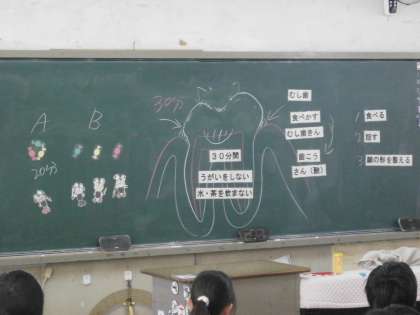 A
B
20分
30分
30分間
うがいをしない
水・茶を飲まない
むし歯
食べかす
むし歯きん
歯こう
さん（酸）
1 食べる
2 話す
3 顔の形を整える